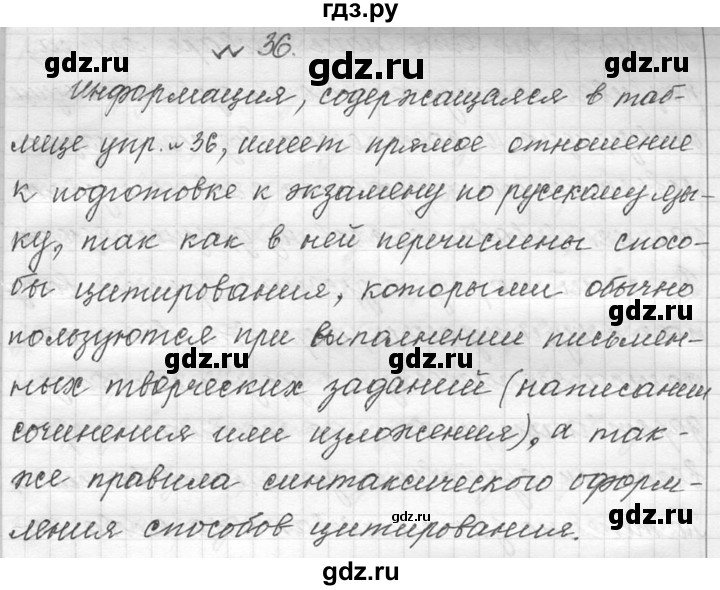 гдз.ру
№ 36.
gdz.ru gdz.ru gdz.ru
Информация, содержащаяся в таб-
лице упр. № 36, имеет прямое отношение
gdz.ru
к подготовке к экзамену по русскому язы-
ку, так как в ней перечислены спосо-
gdz.ru gdz.ru
бы цитирования, которыми обычно
gdz.ru
пользуются при выполнении письмен-
gdz.ru gdz.ru
нных творческих заданий (написании
сочинения или изложения), а так-
gdz.ru
же правила синтаксического оформ-
gdz.ru
ления способов цитирования.
gdz.ru gdz.ru
gdz.ru